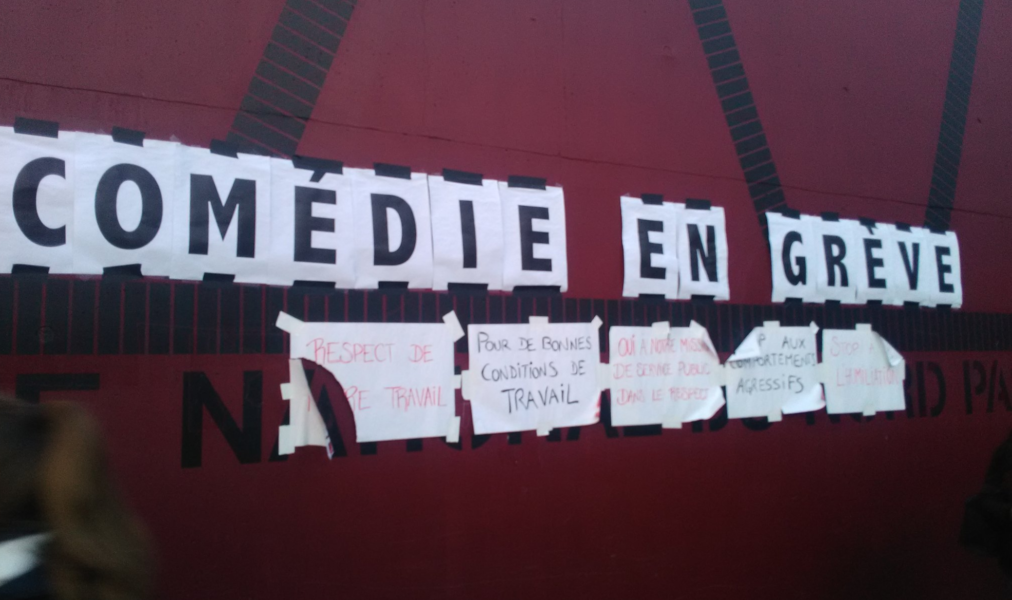 COMÉDIE EN GRÈVE
RESPECT DE
TRAVAIL
POUR DE BONNES
CONDITIONS DE
TRAVAIL
OUI A NOTRE
DE SERVICE PUBLIC
DANS LE RESPECT
AUX
COMPORTEMENTS
AGRESSIFS
STOP
NORD PA